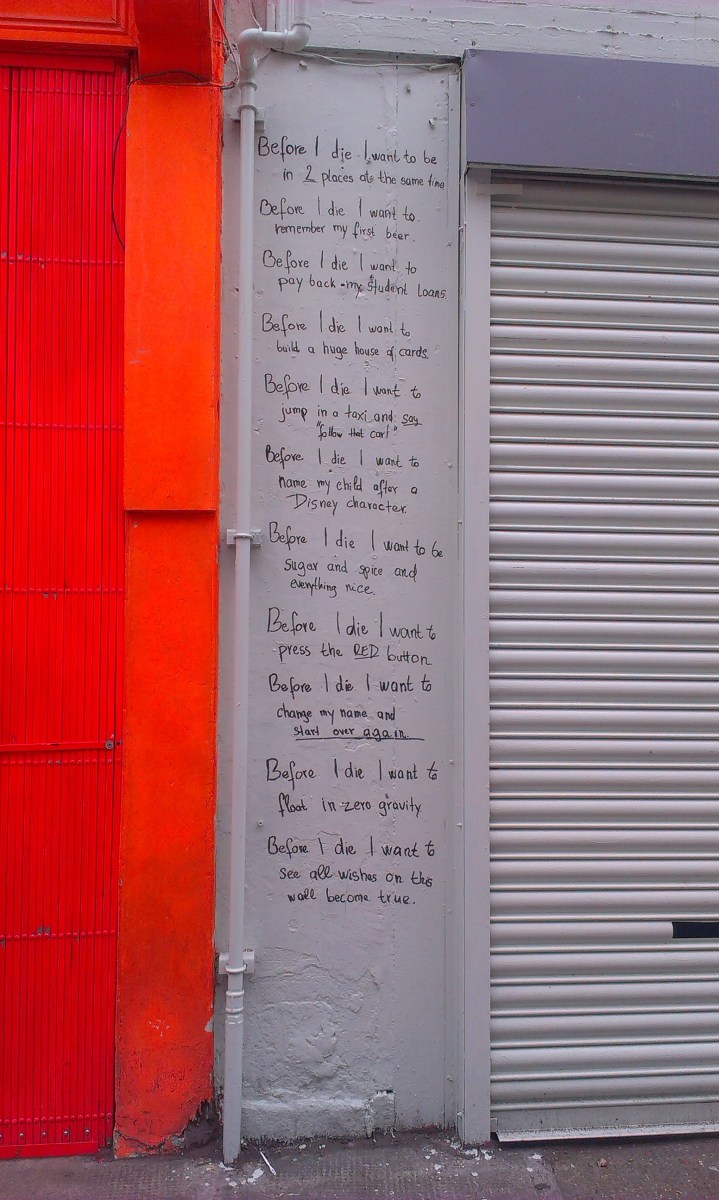 Before I die I want to be
in 2 places at the same time
Before I die I want to
remember my first beer.
Before I die I want to
pay back my student loans.
Before I die I want to
build a huge house of cards.
Before I die I want to
jump in a taxi and say
"follow that car!"
Before I die I want to
name my child after a
Disney character
Before I die I want to be
sugar and spice and
everything nice.
Before I die I want to
press the RED button
Before I die I want to
change my name and
start over again.
Before I die I want to
float in zero gravity
Before I die I want to
see all wishes on this
wall become true.